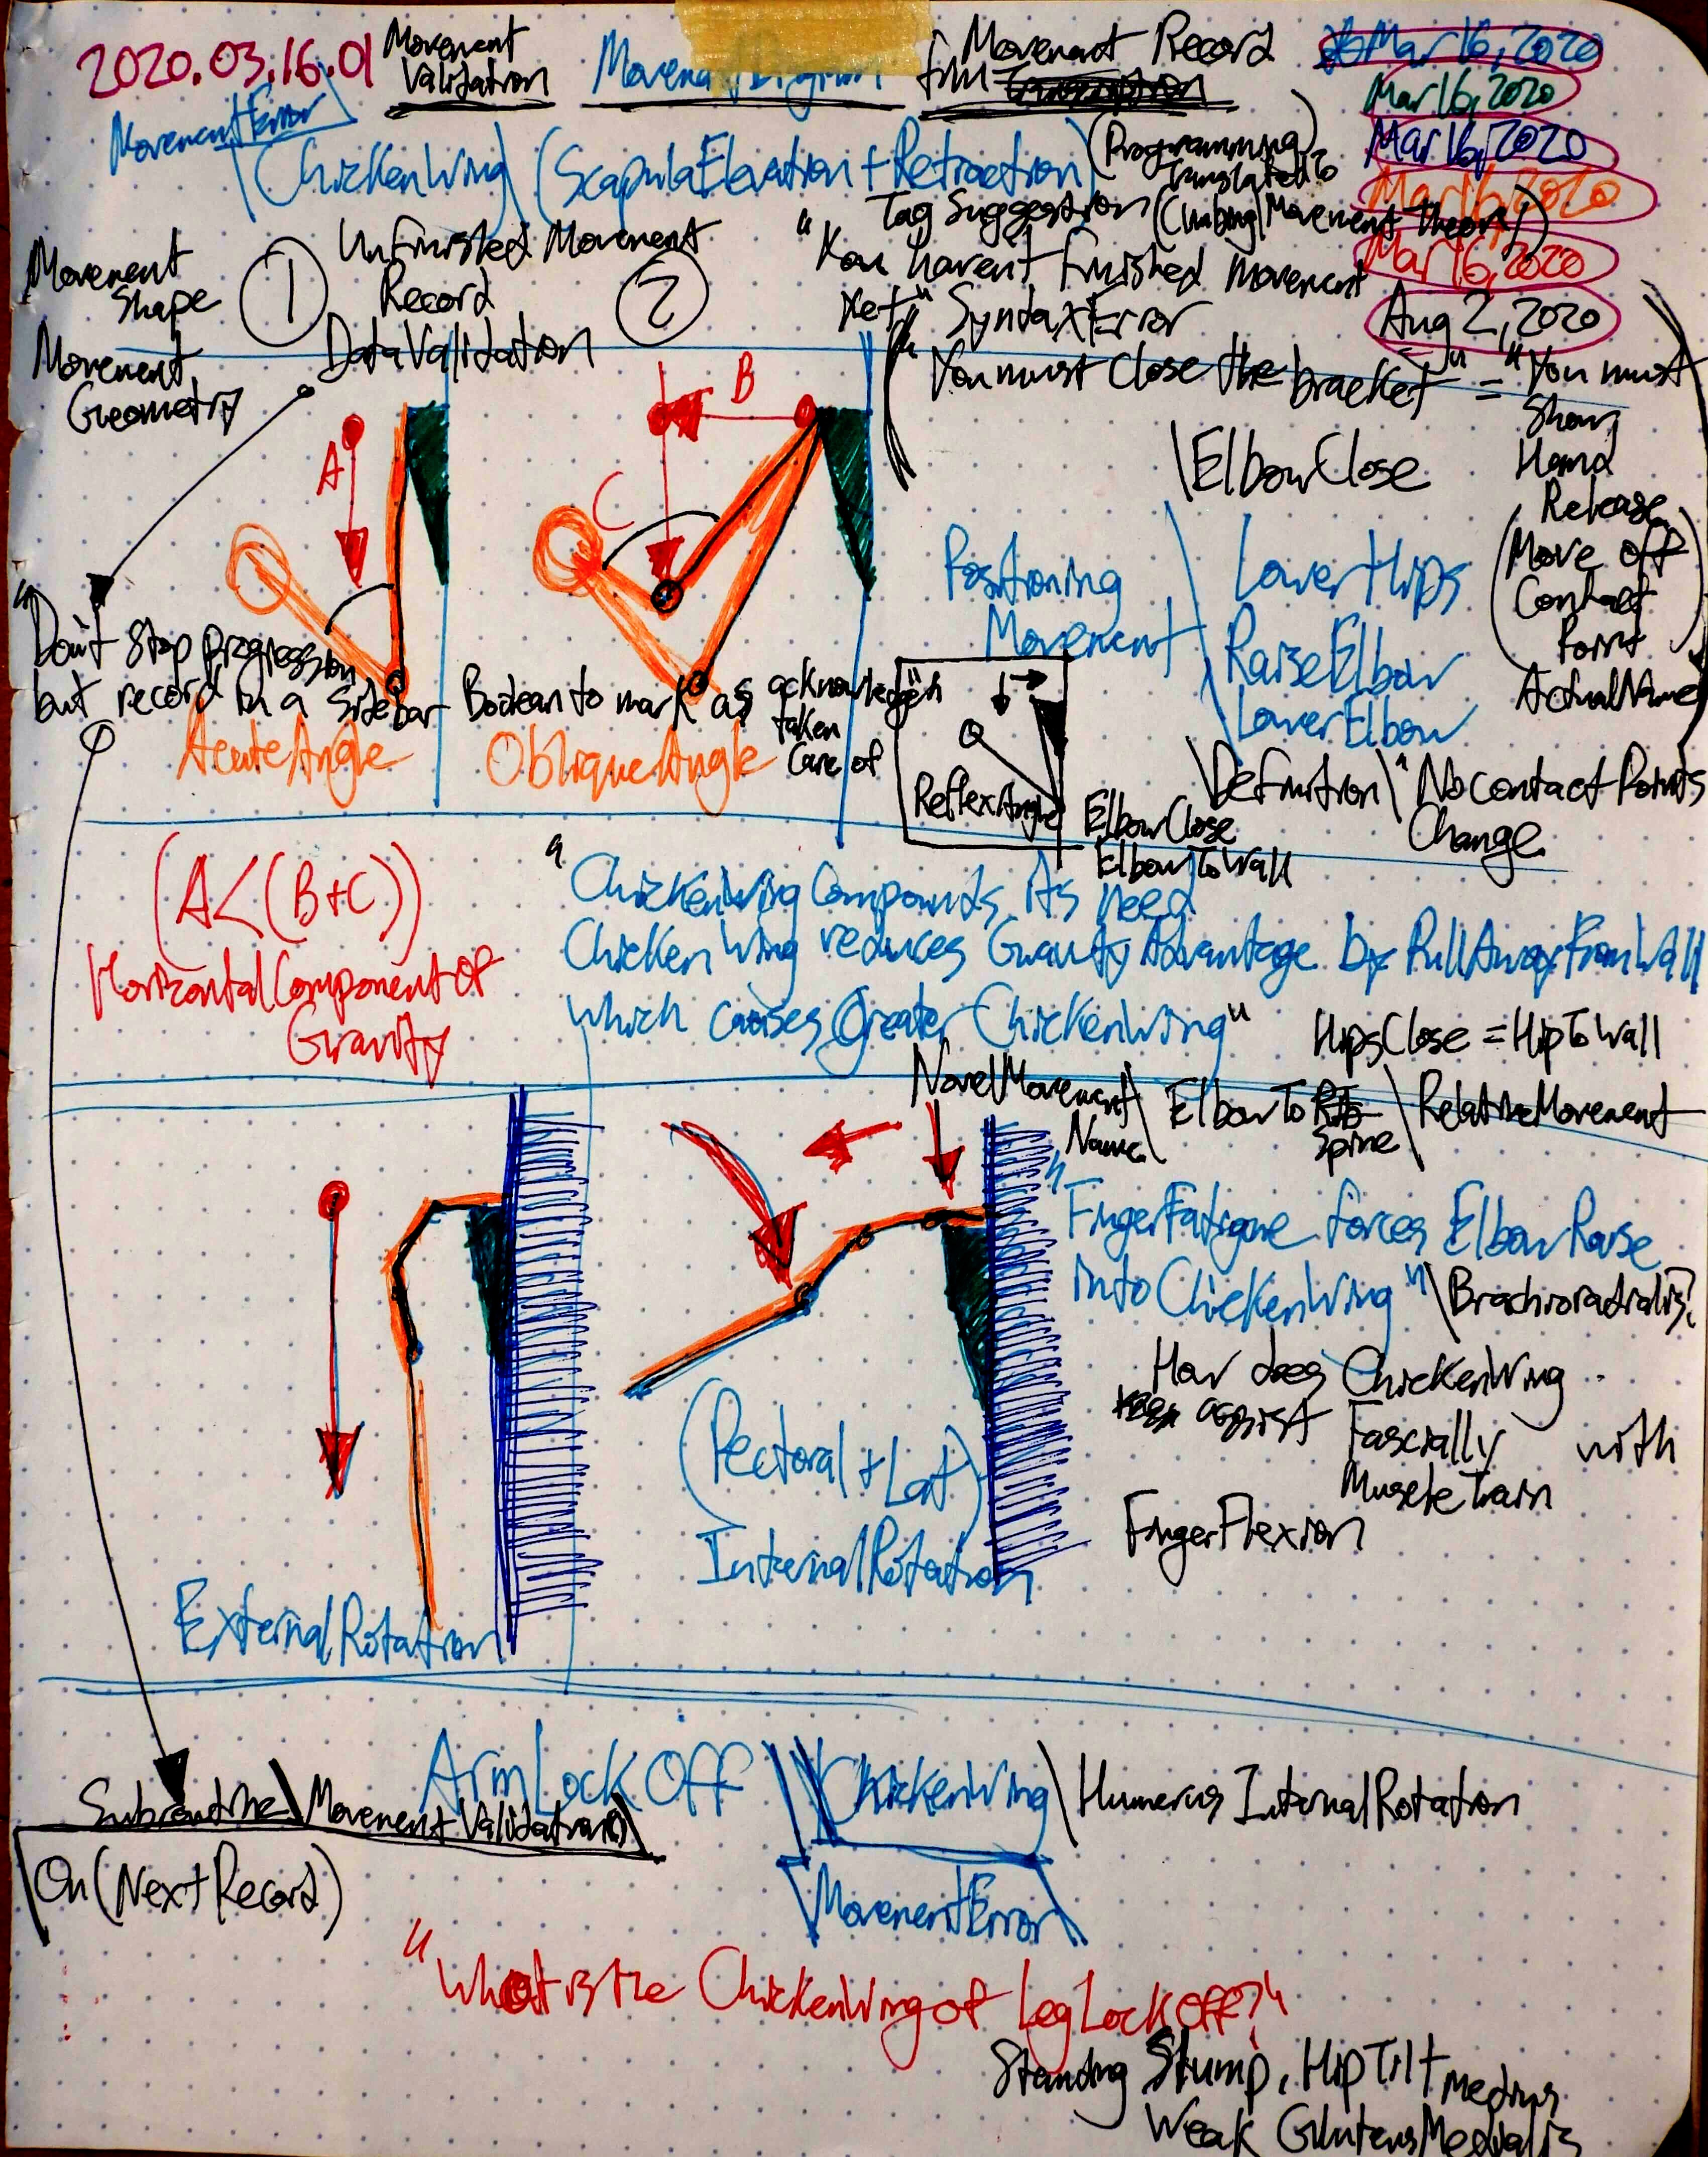 2020.03.16.01
Movement
Validation
Movement Record
from
Mar 16, 2020
Mar 16, 2020
Mar 16, 2020
Mar 16, 2020
Mar 16, 2020
Aug 2, 2020
MovementError
\ChickenWing\ (ScapulaElevation + Retraction)
(Programming
Translated to
Tag Suggestion (Climbing\Movement Theory))
Movement
Shape
Movement
Geometry
①
Unfinished Movement
Record
DataValidation
②
"You haven't finished movement
yet" SyntaxError
"You must close the bracket" = "You must
Show
Hand
Release
(Move off
Contact
Point
ActualName)
A
B
C
\ElbowClose
Positioning
Movement
\LowerHips
\RaiseElbow
\LowerElbow
\Definition\"No contact Points
Change
"Don't stop progression
but record in a sidebar
Boolean to mark as acknowledged
taken
care of
AcuteAngle
ObliqueAngle
ReflexAngle
ElbowClose
ElbowToWall
(A<(B+C))
HorizontalComponentOf
Gravity
"ChickenWing Compounds its need
ChickenWing reduces GravityAdvantage by PullAwayFromWall
which causes Greater ChickenWing"
HipsClose = HipToWall
NovelMovement
Name\
ElbowTo
Spine
\RelativeMovement
"FingerFatigue forces ElbowRaise
into ChickenWing"\Brachioradialis?
How does ChickenWing
assist Fascially with
MuscleTrain
FingerFlexion
(Pectoral + Lat)
InternalRotation
ExternalRotation
ArmLockOff \\ChickenWing\HumerusInternalRotation
Subroutine\MovementValidation()
On(NextRecord)
\MovementError\
"What is the ChickenWing of LegLockOff?"
Standing Stump, HipTilt
medius
Weak GluteusMedialis